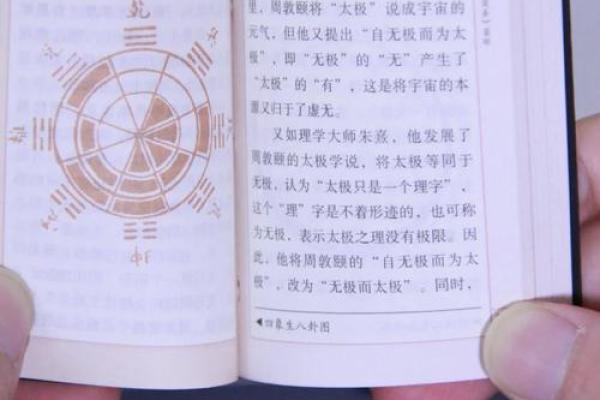 里，周敦颐将“太极”说成宇宙的
元气，但他又提出“自无极而为太
极”，即“无极”的“无”产生了
“太极”的“有”，这是将宇宙的本
源又归于了虚无。
又如理学大师朱熹，他发展了
周敦颐的太极学说，将太极等同于
无极，认为“太极只是一个理字”，
这个“理”字是不着形迹的，也可称
为无极，表示太极之理没有极限。因
此，他将周敦颐的“自无极而为太
极”，改为“无极而太极”。同时，
◀四象生八卦图